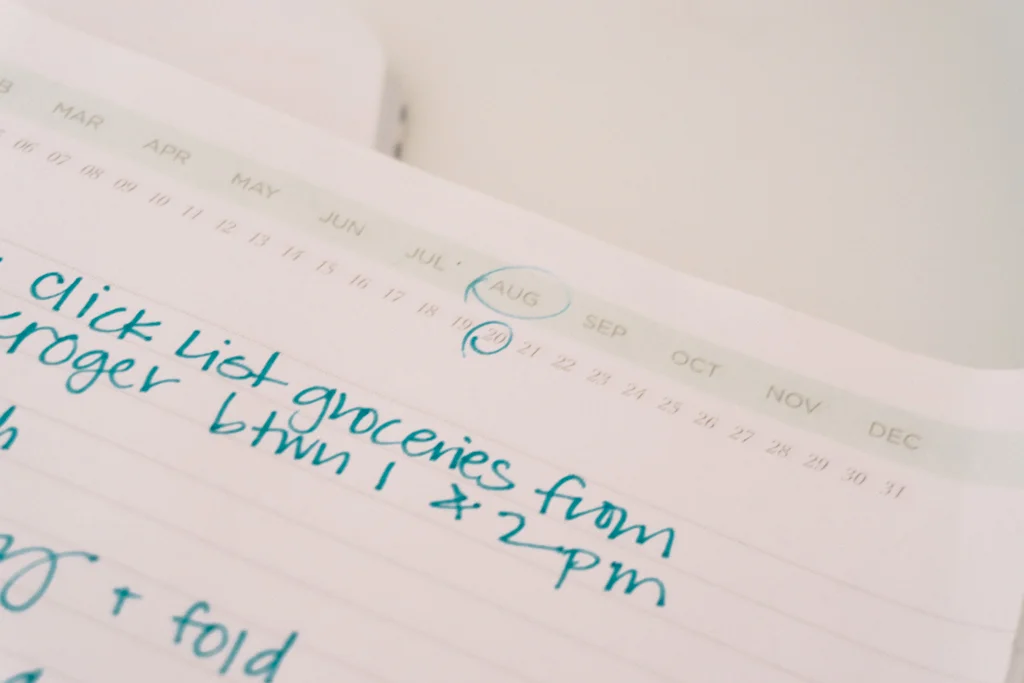 MAR APR MAY JUN JUL AUG SEP OCT NOV DEC
06 07 08 09 10 11 12 13 14 15 16 17 18 19 20 21 22 23 24 25 26 27 28 29 30 31
Click List groceries from
btwn 1 & 2pm
+ fold